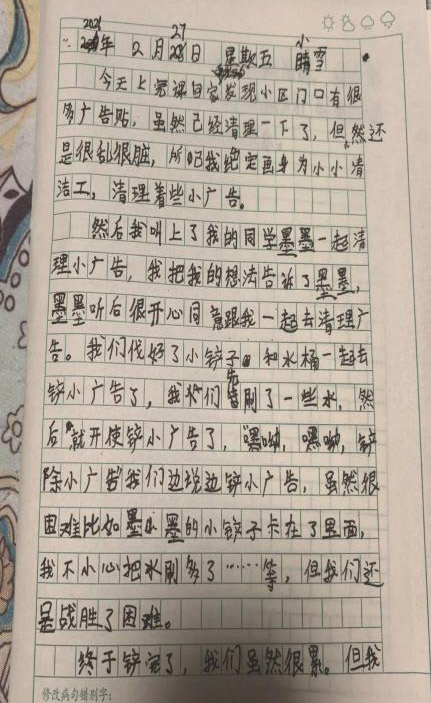 2021年 2月27日 星期五 小雪
今天上完课回家发现小区门口有很
多广告贴，虽然已经清理一下了，但然还
是很乱很脏，所以我绝定画身为小小清
洁工，清理着些小广告。
然后我叫上了我的同学墨墨一起清
理小广告，我把我的想法告诉了墨墨，
墨墨听后很开心同意跟我一起去清理广
告。我们找好了小铲子和水桶一起去
铲小广告了，我们先刷了一些水，然
后就开使铲小广告了，"嘿呦，嘿呦，铲
除小广告"我们边说边铲小广告，虽然很
困难比如墨小墨的小铲子卡在了里面，
我不小心把水刷多了……等，但我们还
是战胜了困难。
终于铲完了，我们虽然很累。但我
修改病句错别字：